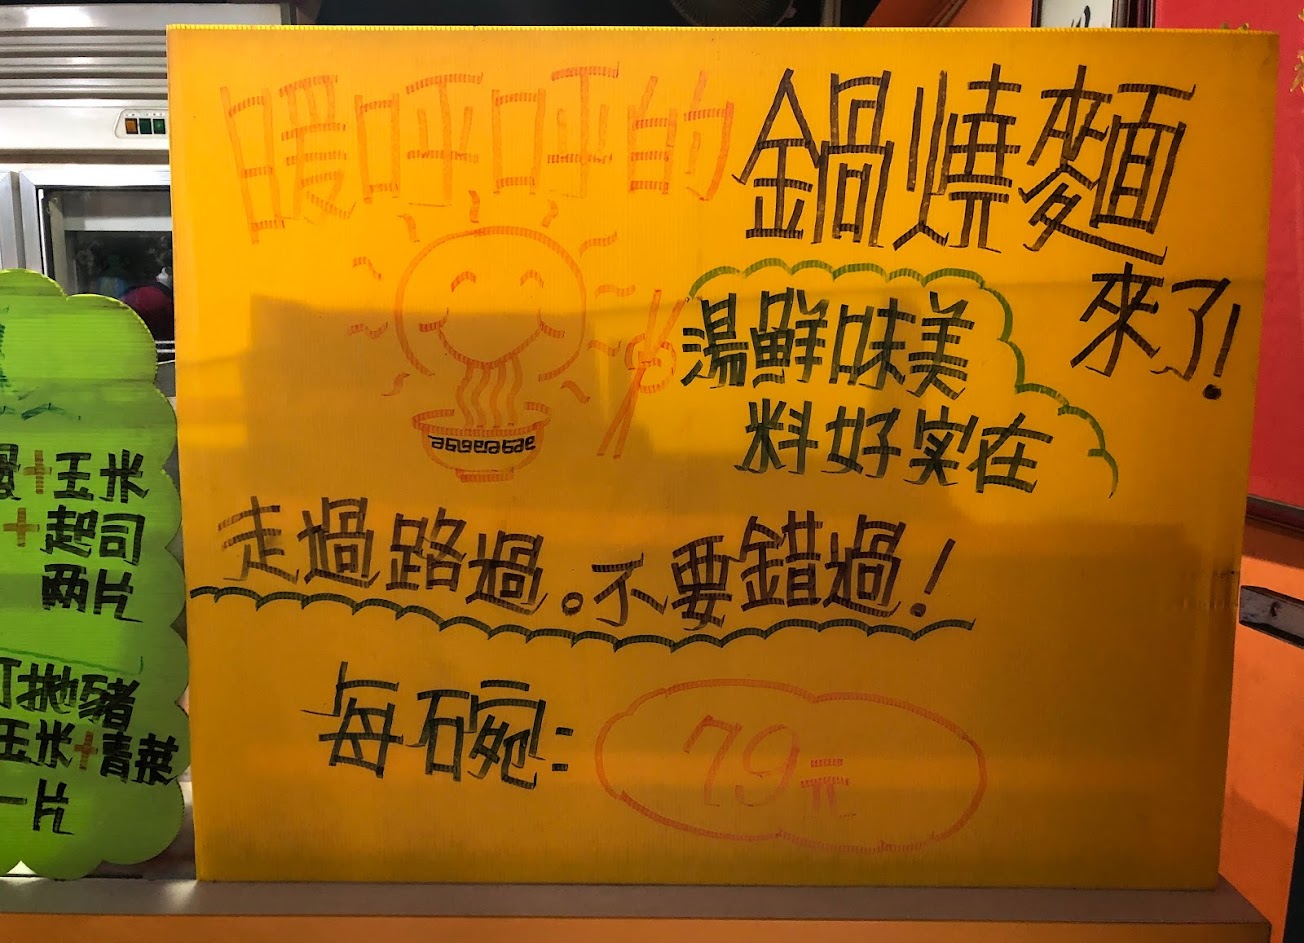 暖呼呼的鍋燒麵
來了!
湯鮮味美
料好实在
走過路過。不要錯過!
每碗:79元
+玉米
+起司
兩片
豬
玉米+青菜
一片